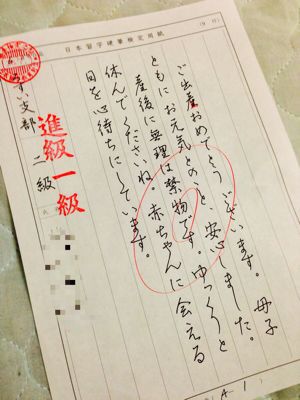 日本習字硬筆検定用紙
ご出産おめでとうございます。母子
ともにお元気とのこと、安心しました。
産後に無理は禁物です。ゆっくりと
休んでくださいね。赤ちゃんに会える
日を心待ちにしています。
進級一級
すい支部 二級
A-1